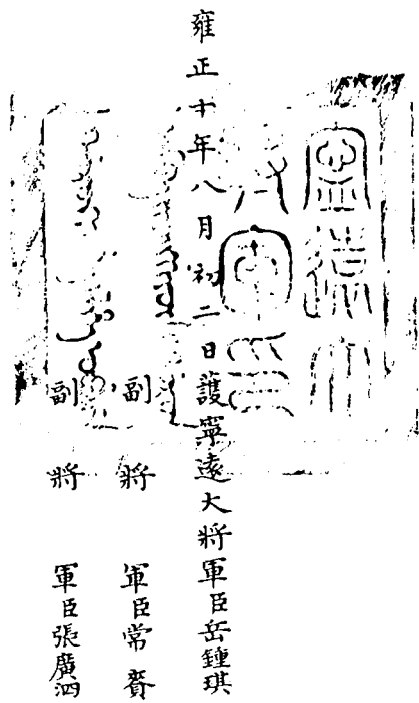 寧遠大
將軍印
雍正十年八月初二日護寧遠大將軍臣岳鍾琪
副將軍臣常賚
副將軍臣張廣泗